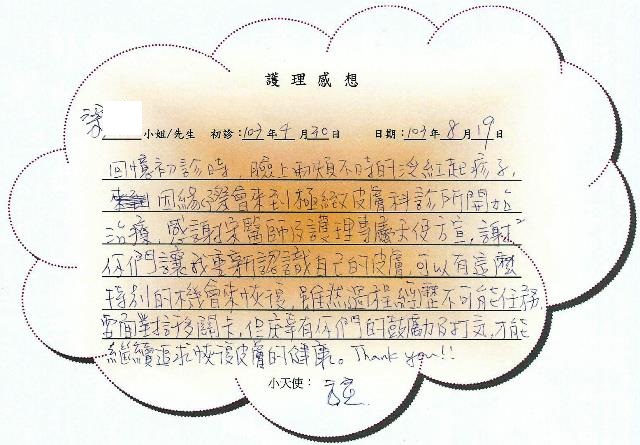 護理感想
梁 小姐/先生 初診:103年4月30日 日期:103年8月19日
回憶初診時,臉上兩頰不時的泛紅起疹子,
因緣際會來到極緻皮膚科診所開始
治療,感謝梁醫師及護理專屬天使方宣,謝²
你們讓我重新認識自己的皮膚,可以有這麼
特別的機會來恢復,雖然過程經歷不可能任務,
需面對許多關卡,但慶幸有你們的鼓勵及打氣,才能
繼續追求恢復皮膚的健康。Thank you!!
小天使: